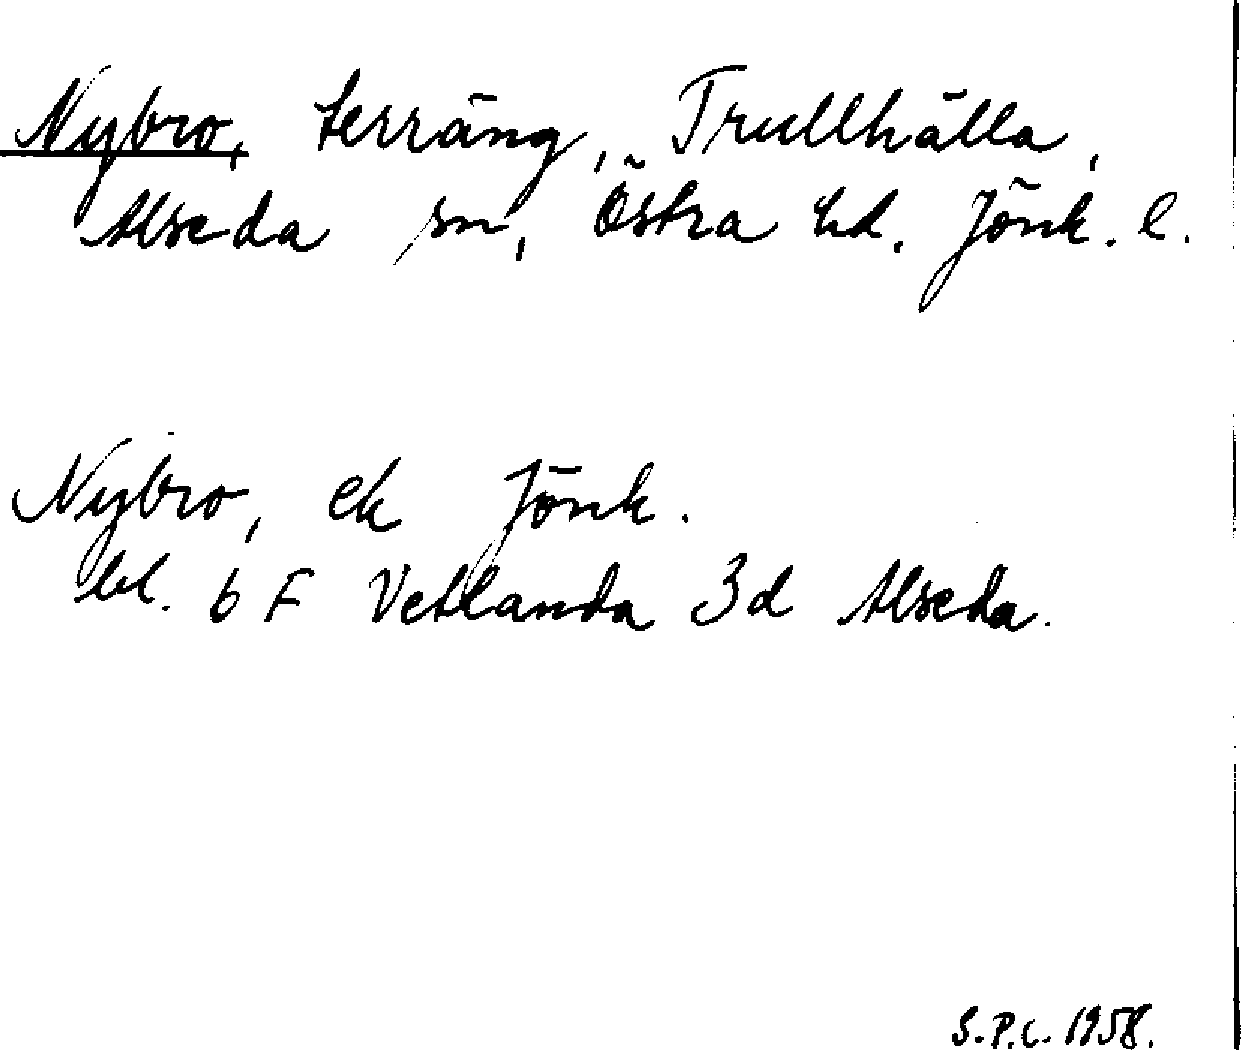 Nybro, terräng, Trullhälla,
Alseda sn, Östra hd. Jönk. l.
Nybro, ek Jönk.
bl. 6 F Vetlanda 3d Alseda.
S.P.C. 1958.